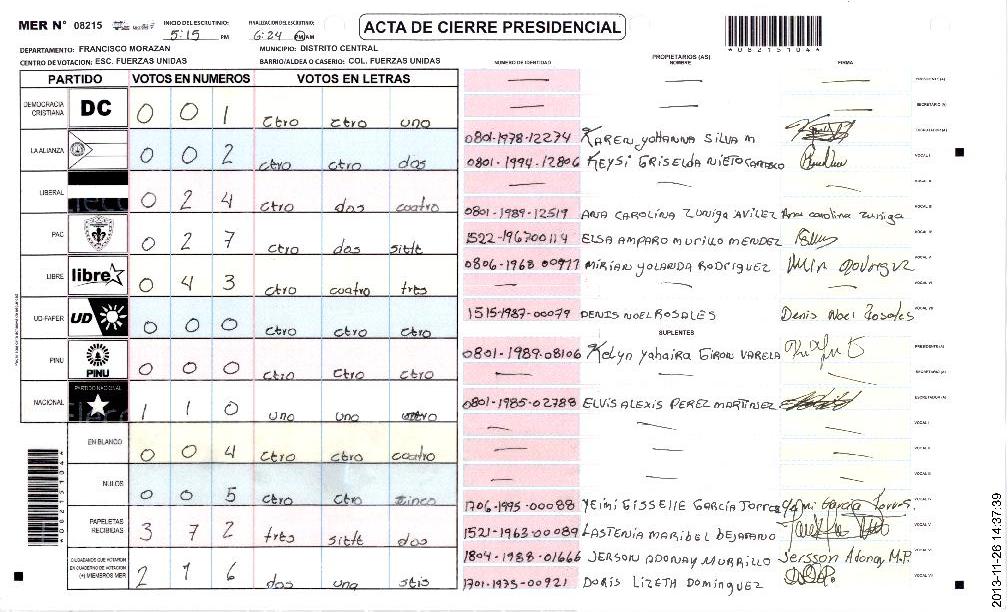 MER N° 08215 INICIO DEL ESCRUTINIO: 5:15 PM FINALIZACION DEL ESCRUTINIO: 6:24 PM AM
ACTA DE CIERRE PRESIDENCIAL
DEPARTAMENTO: FRANCISCO MORAZAN MUNICIPIO: DISTRITO CENTRAL
CENTRO DE VOTACION: ESC. FUERZAS UNIDAS BARRIO/ALDEA O CASERIO: COL. FUERZAS UNIDAS
082151044
PARTIDO VOTOS EN NUMEROS VOTOS EN LETRAS
DEMOCRACIA CRISTIANA DC 0 0 1 cero cero uno
LA ALIANZA 0 0 2 cero cero dos
LIBERAL 0 2 4 cero dos cuatro
PAC 0 2 7 cero dos siete
LIBRE libre 0 4 3 cero cuatro tres
UD-FAPER UD 0 0 0 cero cero cero
PINU PINU 0 0 0 cero cero cero
NACIONAL PARTIDO NACIONAL 1 1 0 uno uno cero
EN BLANCO 0 0 4 cero cero cuatro
NULOS 0 0 5 cero cero cinco
PAPELETAS RECIBIDAS 3 7 2 tres siete dos
CIUDADANOS QUE VOTARON EN CUADERNO DE VOTACION (+) MIEMBROS MER 2 1 6 dos uno seis
NÚMERO DE IDENTIDAD PROPIETARIOS (AS) NOMBRE FIRMA
PRESIDENTE (A)
SECRETARIO (A)
0801-1978-12274 KAREN yohanna SILVA M ESCRUTADOR (A)
0801-1994-12806 KEYSI GRISELDA NIETO CARRASCO VOCAL I
VOCAL II
0801-1989-12519 ANA CAROLINA ZUNIGA AVILEZ Ana carolina zuniga VOCAL III
1522-196700114 ELSA AMPARO MURILLO MENDEZ VOCAL IV
0806-1968 00977 MIRIAN YOLANDA RODRIGUEZ VOCAL V
VOCAL VI
1515-1987-00079 DENIS NOEL ROSALES Denis Noel Rosales VOCAL VII
SUPLENTES
0801-1989-08106 Kelyn yahaira GIRON VARELA PRESIDENTE (A)
SECRETARIO (A)
0801-1985-02788 ELVIS ALEXIS PEREZ MARTINEZ ESCRUTADOR (A)
VOCAL I
VOCAL II
VOCAL III
1706-1995-00088 YEIMI GISSELLE GARCÍA TORRES VOCAL IV
1521-1963-00089 LASTENIA MARIBEL BEJARANO VOCAL V
1804-1988-01666 JERSON ADONAY MURRILLO Jersson Adonay M.P. VOCAL VI
1701-1975-00921 DORIS LIZETH DOMINGUEZ VOCAL VII
082151044
2013-11-26 14:37:39